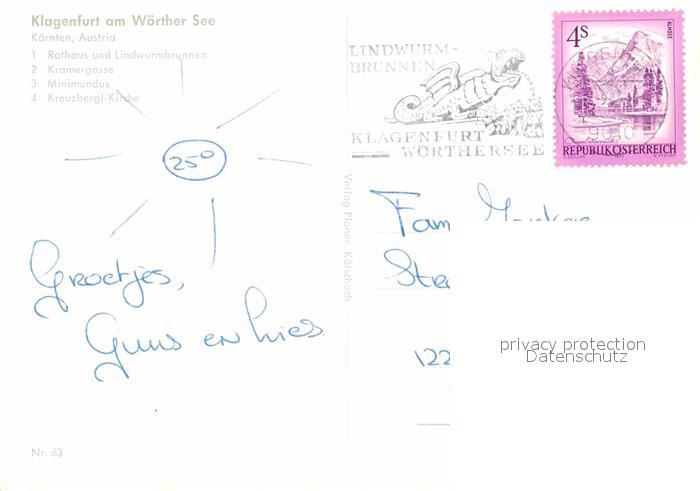 Klagenfurt am Wörther See
Kärnten, Austria
1 Rathaus und Lindwurmbrunnen
2 Kramergasse
3 Minimundus
4 Kreuzbergl-Kirche
25°
Groetjes,
Guus en Mies
Nr. 63
Verlag Planer, Kötschach
LINDWURM-
BRUNNEN
KLAGENFURT
WÖRTHERSEE
4S
ALMSEE
9010
REPUBLIK ÖSTERREICH
Fam
Stra
122
privacy protection
Datenschutz